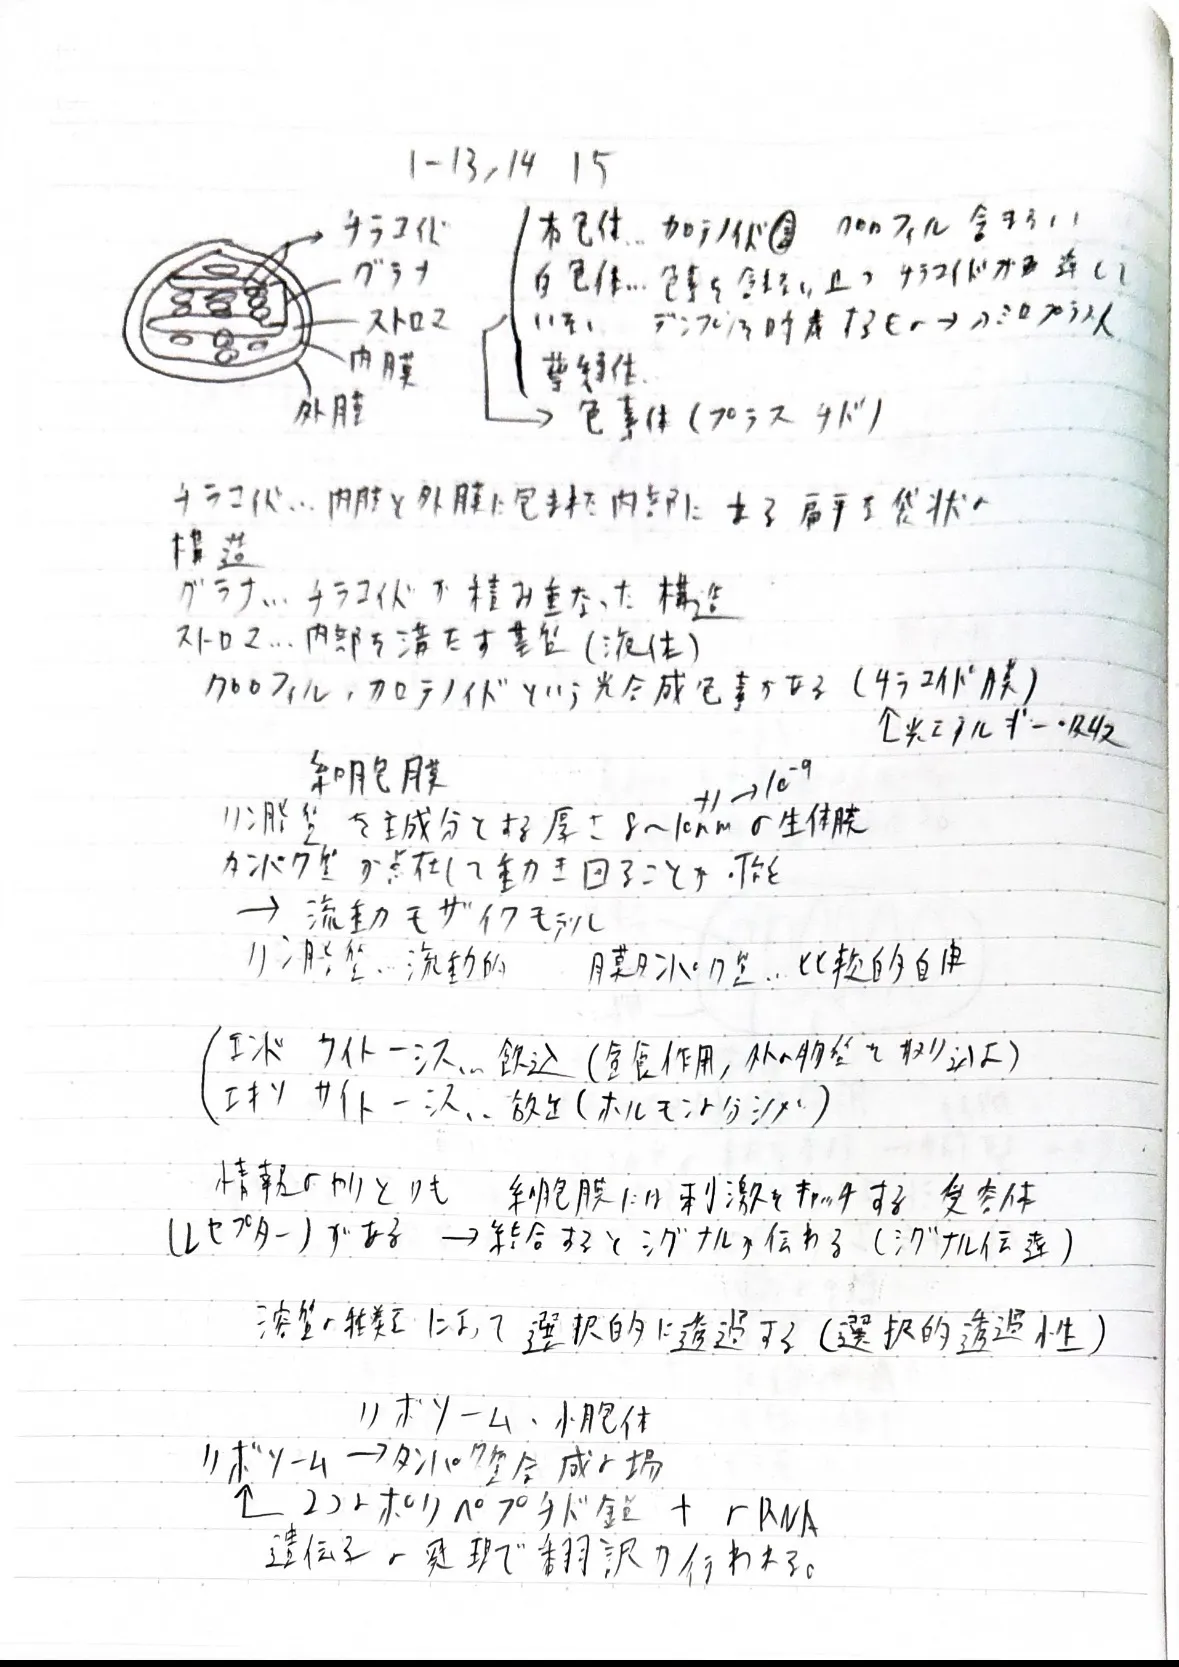 1-13,14 15
チラコイド
グラナ
ストロマ
内膜
外膜
有色体…カロテノイド クロロフィル含まない
白色体…色素を含まない且つチラコイドが発達して
いない デンプンを貯蔵するもの→アミロプラスト
葉緑体
色素体(プラスチド)
チラコイド…内膜と外膜に包まれた内部にある扁平な袋状の
構造
グラナ…チラコイドが積み重なった構造
ストロマ…内部を満たす基質(液体)
クロロフィル、カロテノイドという光合成色素がある(チラコイド膜)
↑光エネルギー吸収
細胞膜
ナノ→10⁻⁹
リン脂質を主成分とする厚さ8~10nmの生体膜
タンパク質が点在して動き回ることが可能
→流動モザイクモデル
リン脂質…流動的 膜タンパク質…比較的自由
エンドサイトーシス…飲込(食作用,外の物質を取り込む)
エキソサイトーシス…放出(ホルモンの分泌)
情報のやりとりも 細胞膜には刺激をキャッチする受容体
(レセプター)がある →結合するとシグナルが伝わる(シグナル伝達)
溶質の種類によって選択的に透過する(選択的透過性)
リボソーム、小胞体
リボソーム→タンパク質合成の場
↑2つのポリペプチド鎖 + rRNA
遺伝子の発現で翻訳が行われる。